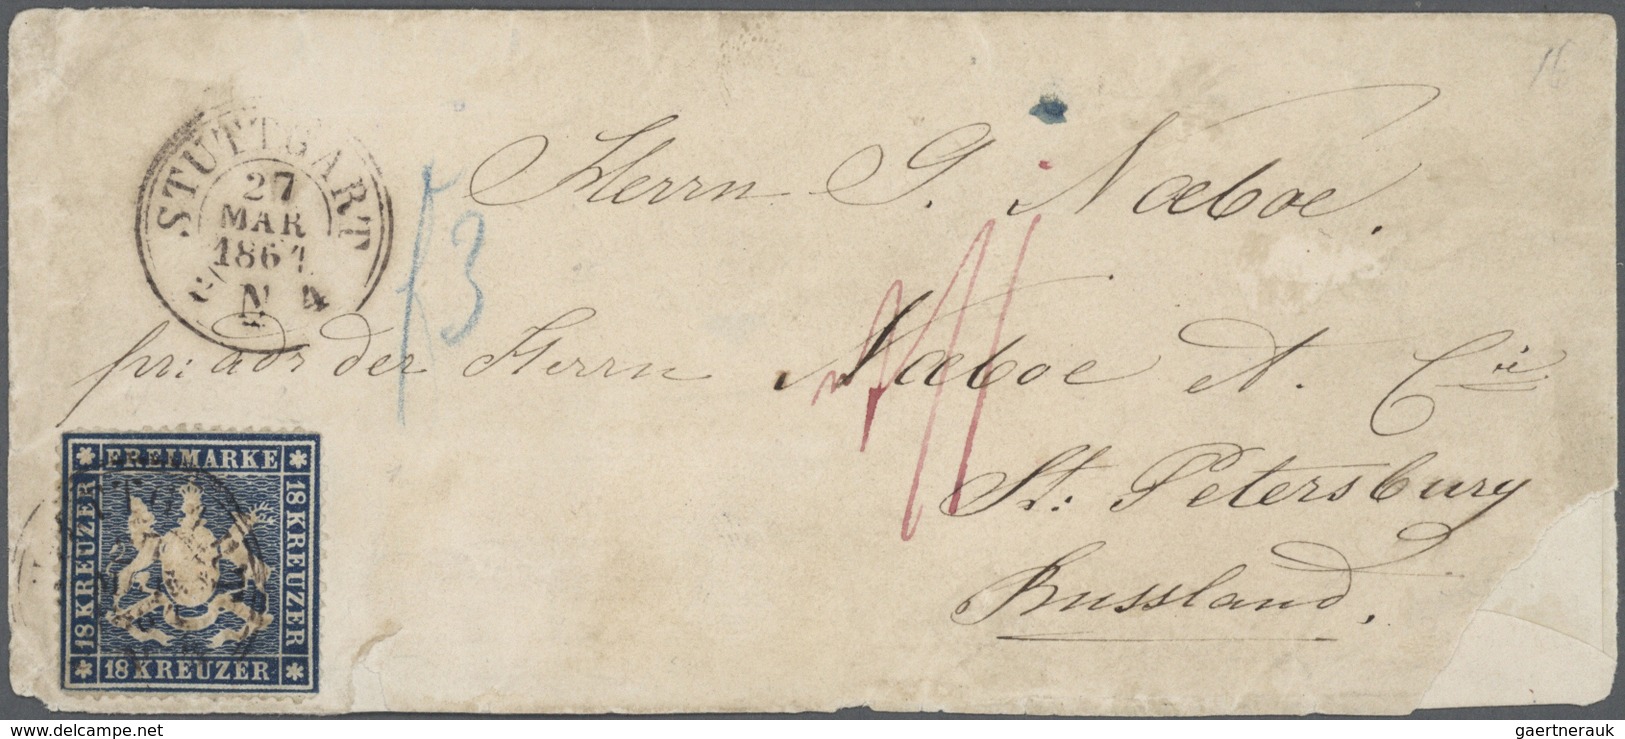 16
STUTTGART
27
MAR
186
N 4
f3
Herrn G. Naeboe.
pr: adr der Herrn Naeboe et Cie
St: Petersburg
Russland.
FREIMARKE
18 KREUZER
18 KREUZER
18 KREUZER
www.delcampe.net
gaertnerauk